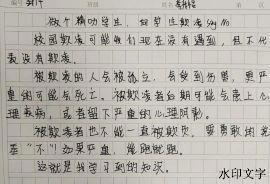 做个精功学生，向学生欺凌say no
校园欺凌可能我们现在没有遇到，但不代
表没有欺凌。
被欺凌的人会被孤立，会受到伤害，更严
重的可能会死亡。被欺凌者后期可能会患上心
理疾病，或者留下严重的心理阴影。
被欺凌者也不能一直被欺负，要勇敢的说
"不"如果严重，能跑就跑。
这就是我学习到的知识。
水印文字